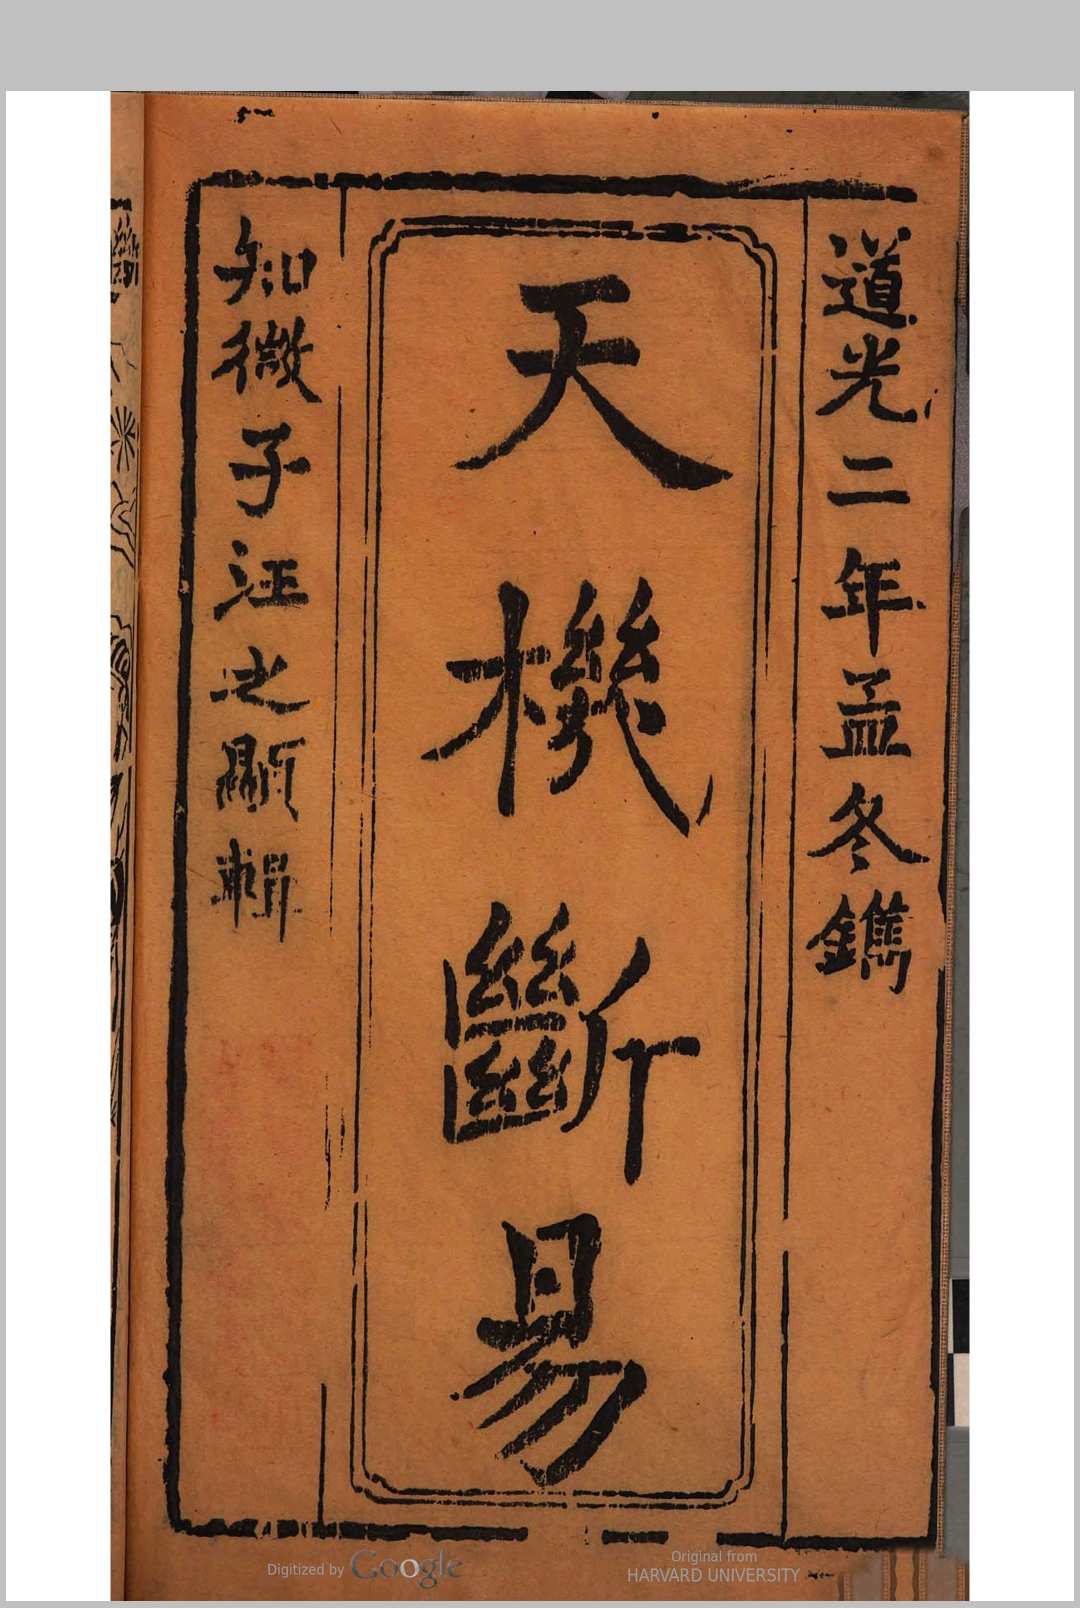 道光二年孟冬鐫
天機斷易
知微子汪之顯輯
Digitized by Google
Original from
HARVARD UNIVERSITY